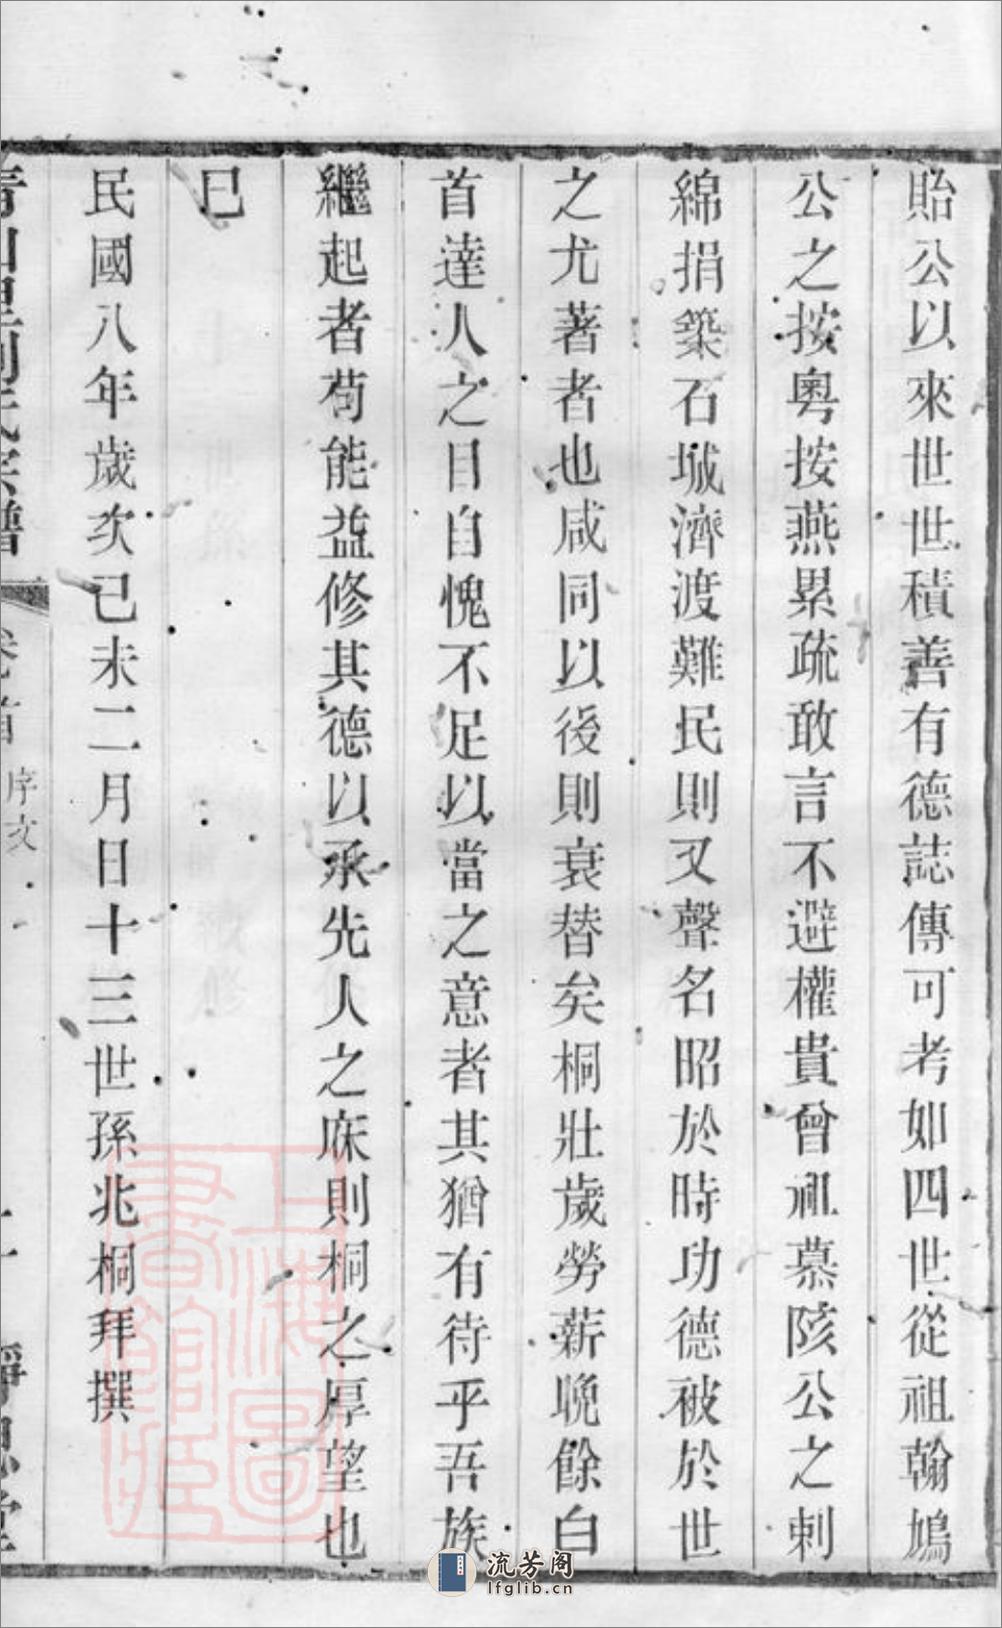 貽公以來世世積善有德誌傳可考如四世從祖翰鳩
公之按粵按燕累疏敢言不避權貴曾祖慕陔公之刺
綿捐築石城濟渡難民則又聲名昭於時功德被於世
之尤著者也咸同以後則衰替矣桐壯歲勞薪晚餘白
首達人之目自愧不足以當之意者其猶有待乎吾族
繼起者苟能益修其德以承先人之庥則桐之厚望也
巳
民國八年歲次己未二月日十三世孫兆桐拜撰
宗譜
卷首
序文
上海圖書館藏
流芳阁
lfglib.cn